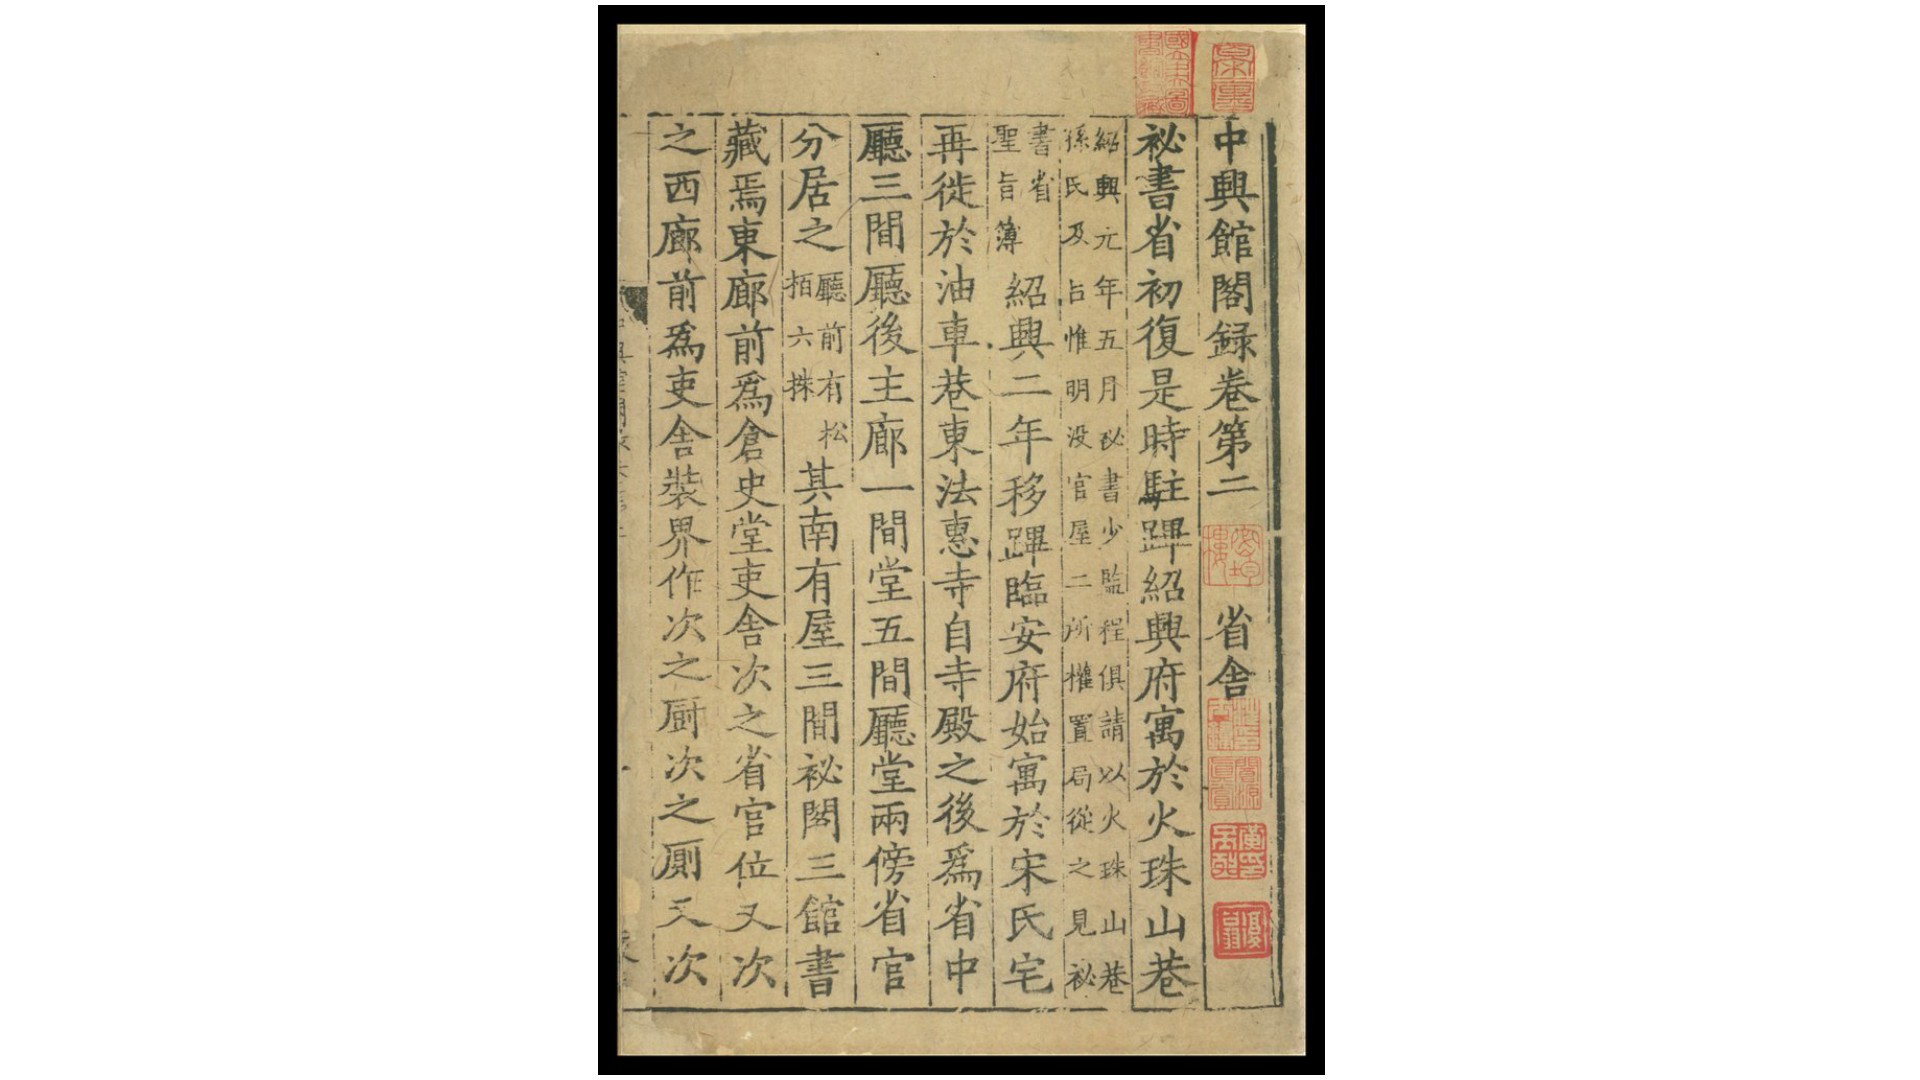 中興館閣録卷第二 省舎
祕書省初復是時駐蹕紹興府寓於火珠山巷
紹興元年五月祕書少監程俱請以火珠山巷
孫氏及占惟明没官屋二所權置局從之見祕
書省
聖旨簿
紹興二年移蹕臨安府始寓於宋氏宅
再徙於油車巷東法惠寺自寺殿之後爲省中
廳三間廳後主廊一間堂五間廳堂兩傍省官
分居之
廳前有松
栢六株
其南有屋三間祕閣三館書
藏焉東廊前爲倉史堂吏舎次之省官位又次
之西廊前爲吏舎裝界作次之厨次之厠又次